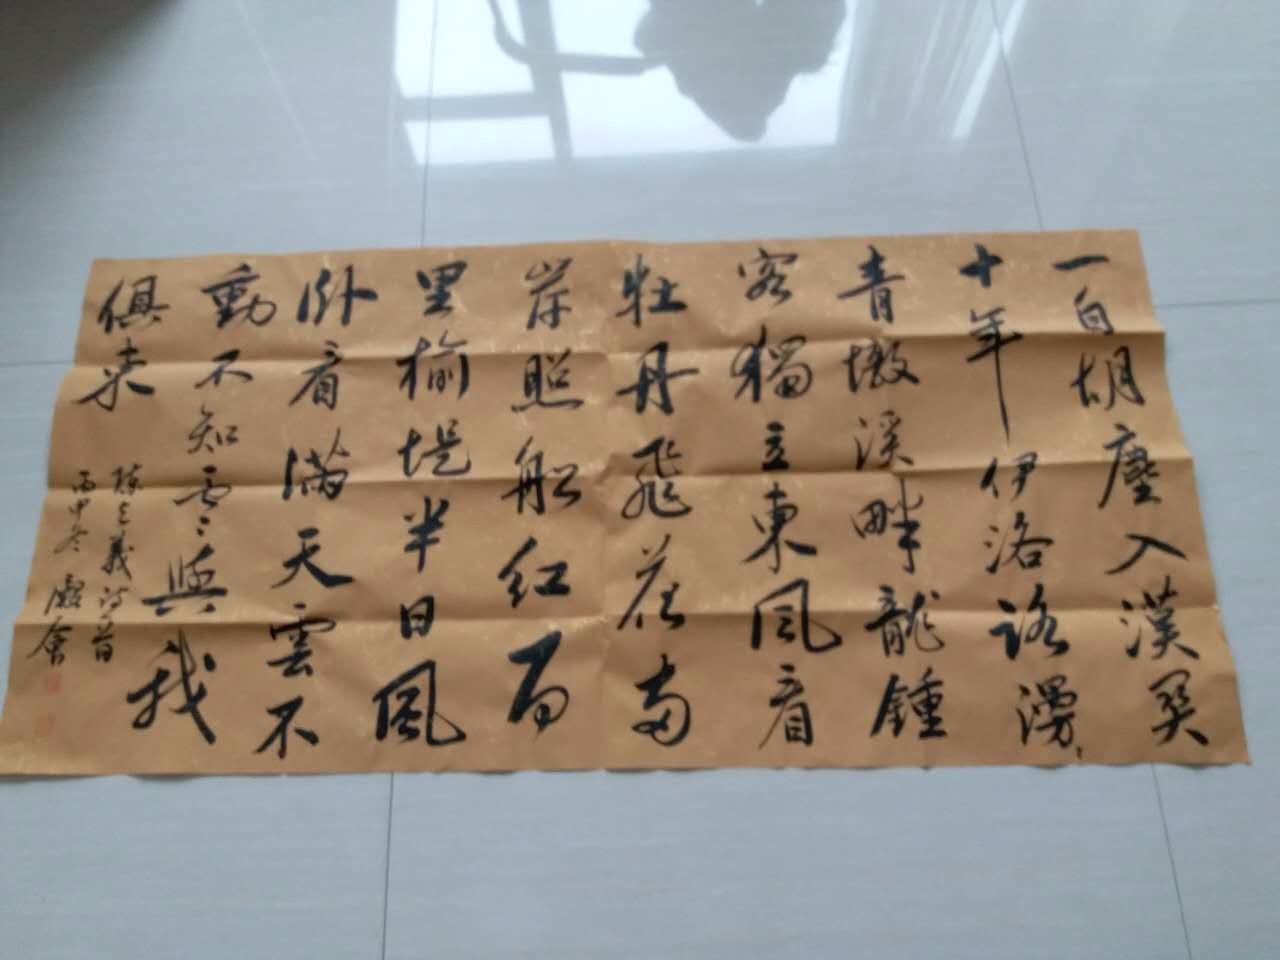 一自胡塵入漢關
十年伊洛路漫〻
青墩溪畔龍鍾
客獨立東風看
牡丹飛花兩
岸照船紅百
里榆堤半日風
卧看滿天雲不
動不知云與我
俱東
陳與義詩二首
丙申冬